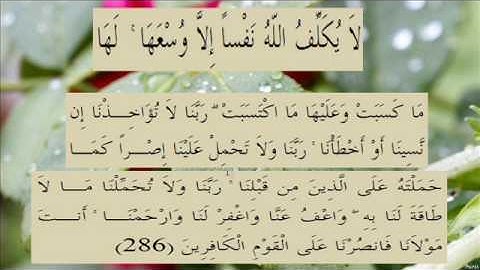 لاَ يُكَلِّفُ اللّهُ نَفْساً إِلاَّ وُسْعَهَا ۚ لَهَا
مَا كَسَبَتْ وَعَلَيْهَا مَا اكْتَسَبَتْ ۗ رَبَّنَا لاَ تُؤَاخِذْنَا إِن
نَّسِينَا أَوْ أَخْطَأْنَا ۚ رَبَّنَا وَلاَ تَحْمِلْ عَلَيْنَا إِصْراً كَمَا
حَمَلْتَهُ عَلَى الَّذِينَ مِن قَبْلِنَا ۚ رَبَّنَا وَلاَ تُحَمِّلْنَا مَا لاَ
طَاقَةَ لَنَا بِهِ ۖ وَاعْفُ عَنَّا وَاغْفِرْ لَنَا وَارْحَمْنَا ۚ أَنتَ
مَوْلاَنَا فَانصُرْنَا عَلَى الْقَوْمِ الْكَافِرِينَ (286)